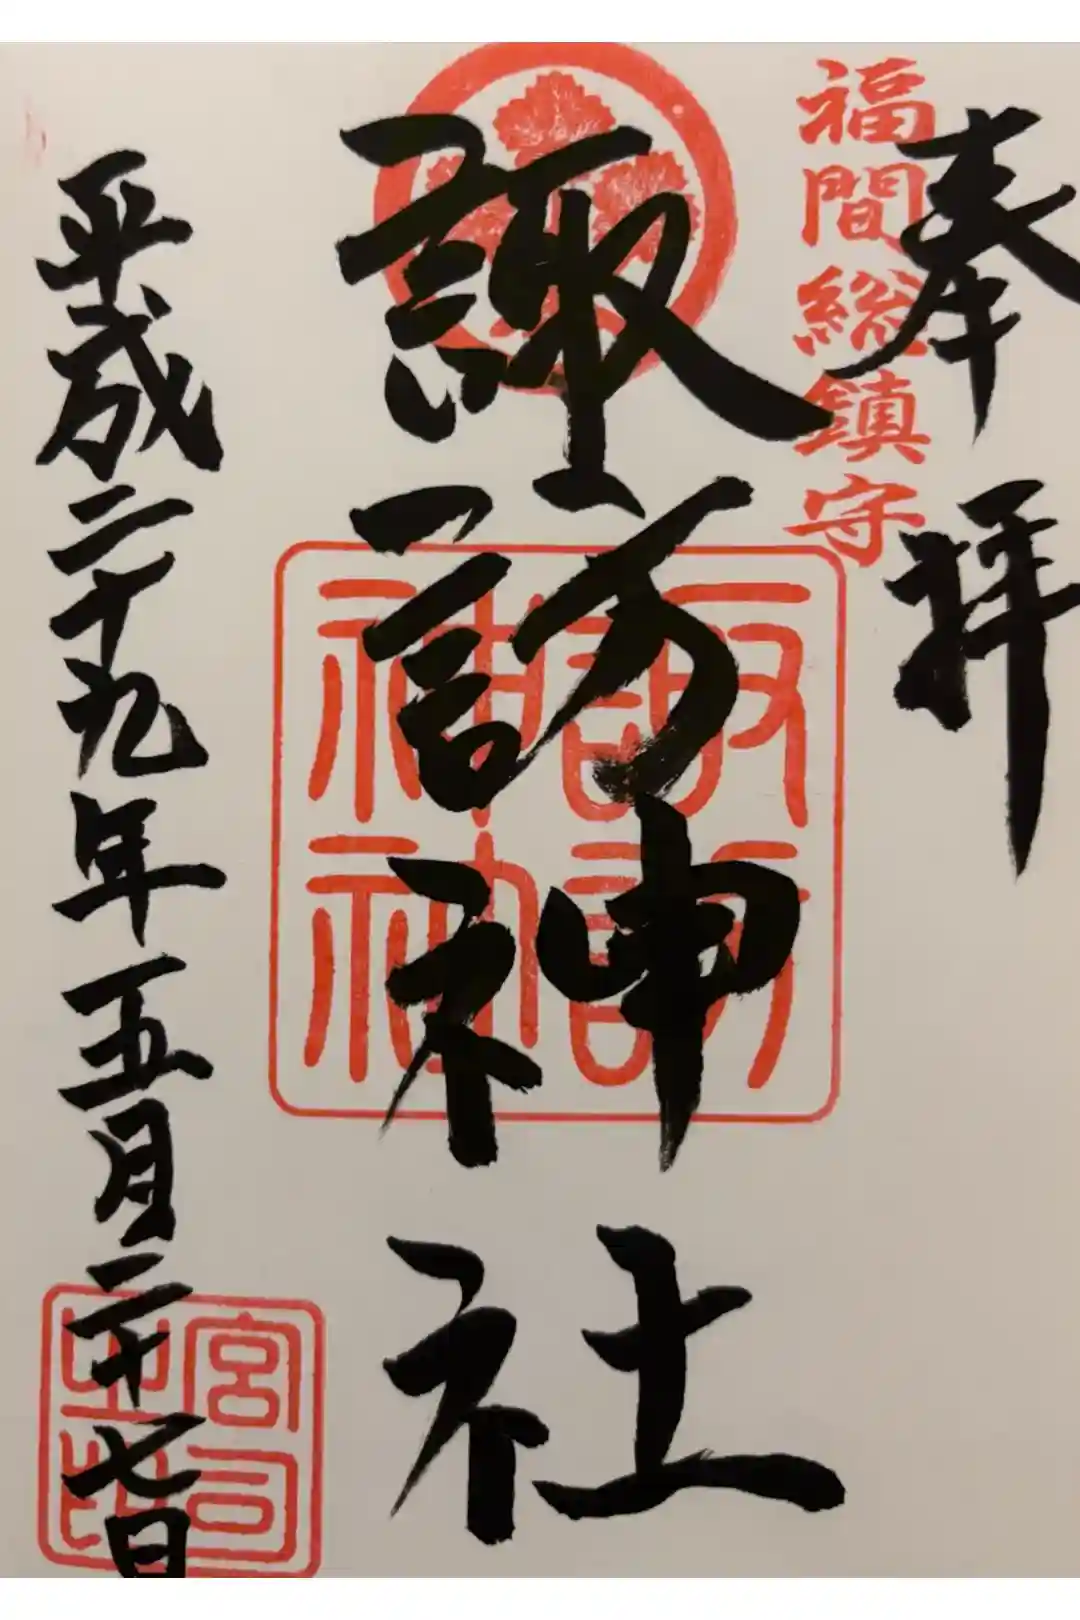 奉拝
福間総鎮守
諏訪神社
諏訪
神社
平成二十九年五月二十七日
宮司
之印